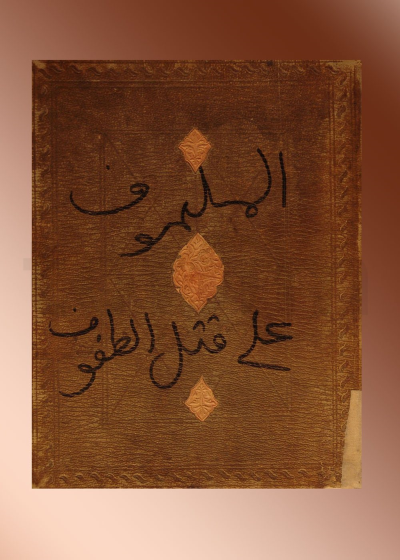 الملهوف
على قتل الطفوف